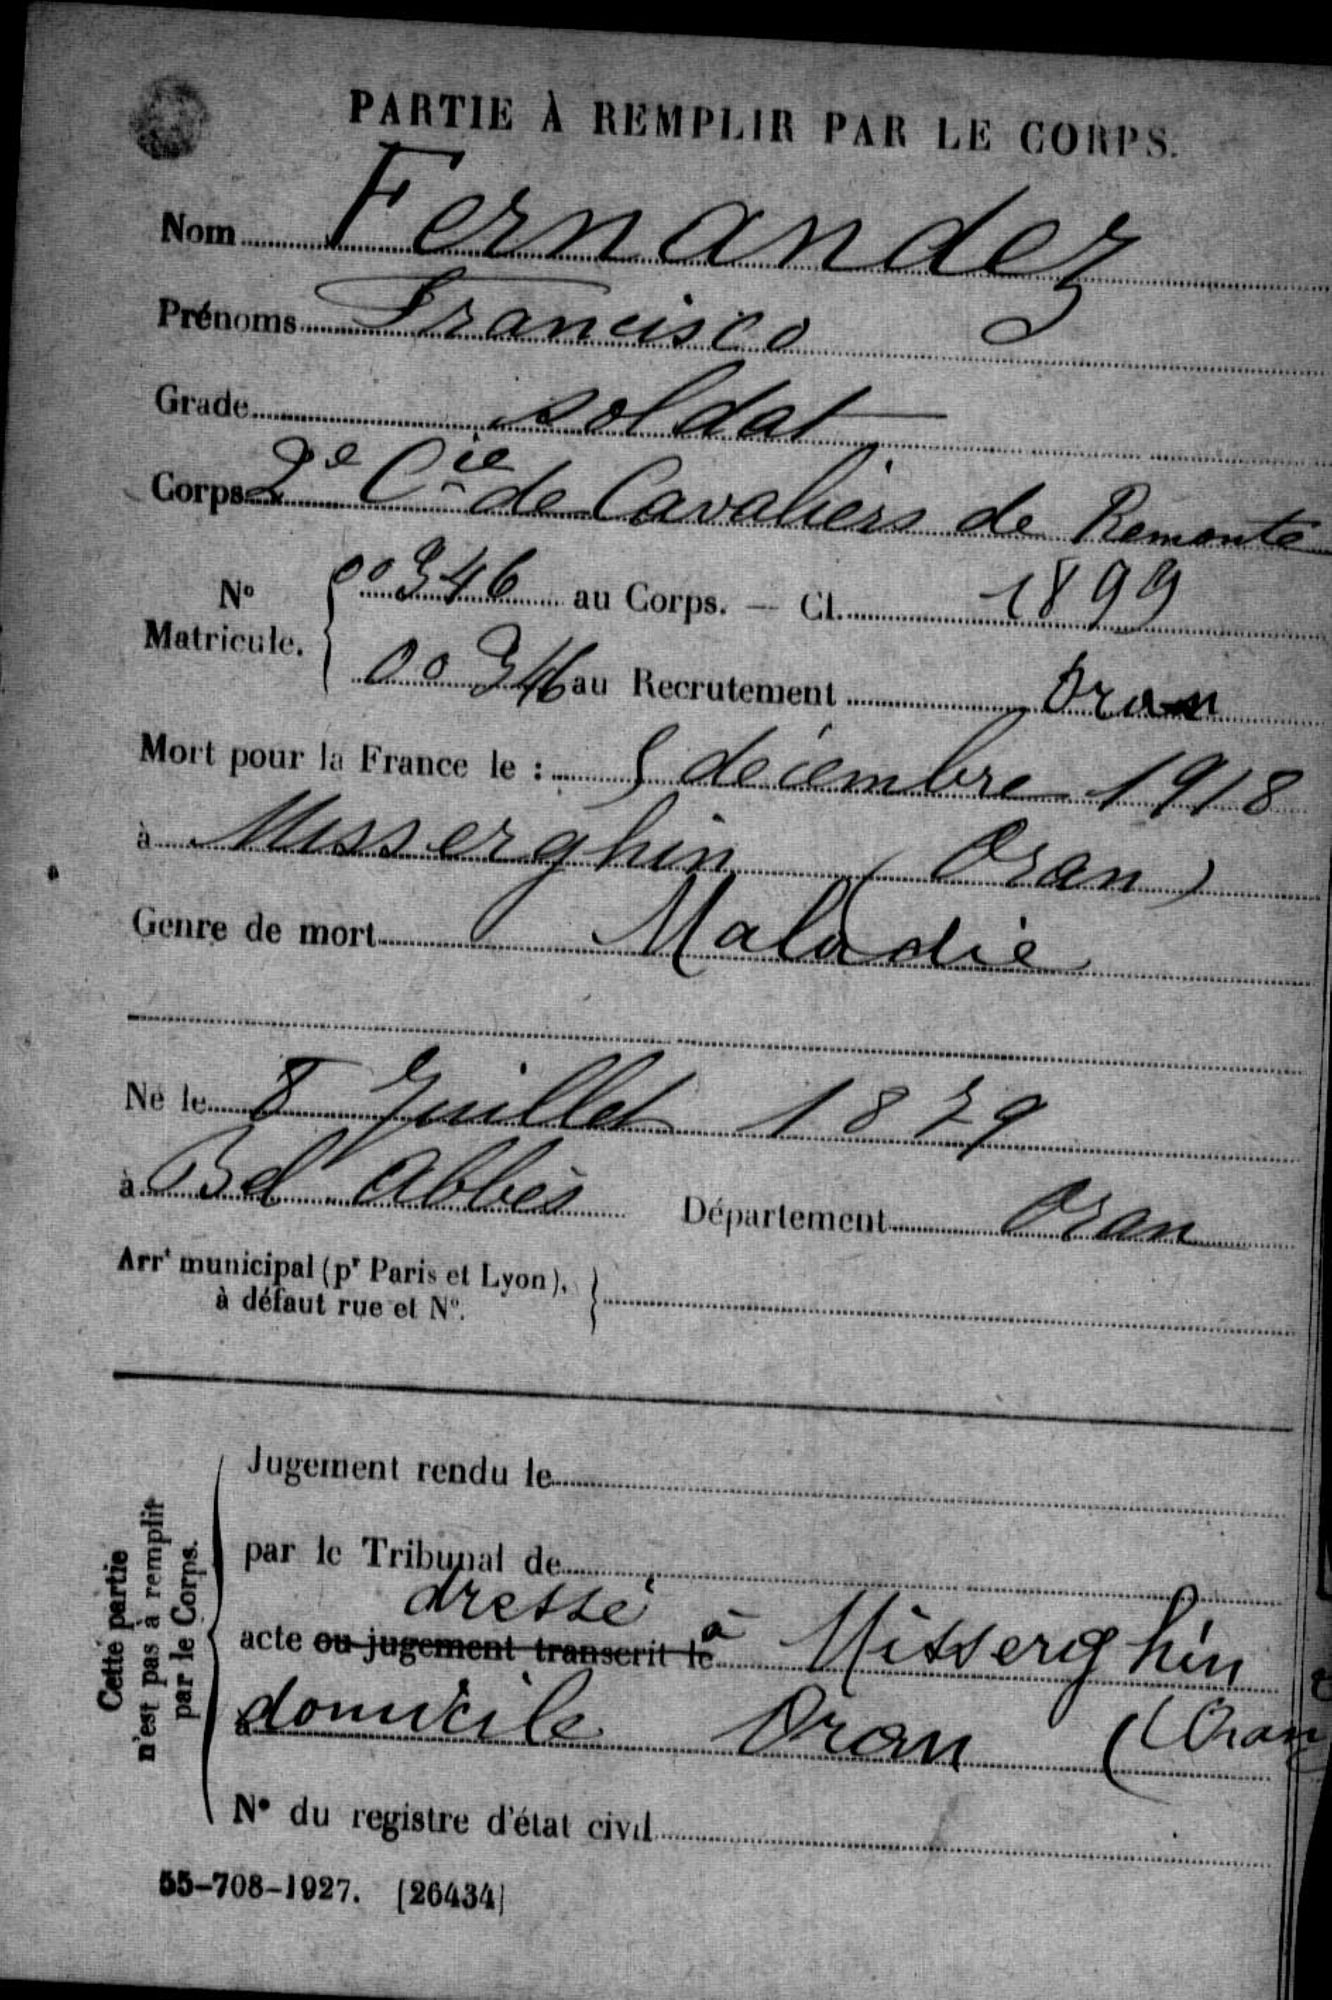 PARTIE À REMPLIR PAR LE CORPS.
Nom Fernandez
Prénoms Francisco
Grade soldat
Corps 2e Cie de Cavaliers de Remonte
No Matricule. { 00346 au Corps. — Cl. 1899
00346 au Recrutement Oran
Mort pour la France le : 5 décembre 1918
à Misserghin (Oran)
Genre de mort Maladie
Né le 8 Juillet 1879
à Bel Abbès Département Oran
Arrt municipal (pr Paris et Lyon), }
à défaut rue et No.
Cette partie
n'est pas à remplir
par le Corps.
Jugement rendu le
par le Tribunal de
dressé à
acte ou jugement transcrit le Misserghin
à domicile Oran (Oran
No du registre d'état civil
55-708-1927. [26434]